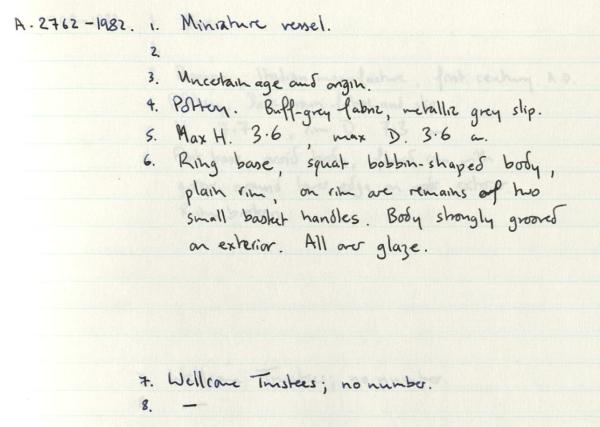 A. 2762-1982. 1. Miniature vessel.
2
3. Uncertain age and origin.
4. Pottery. Buff-grey fabric, metallic grey slip.
5. Max H. 3.6, max D. 3.6 cm.
6. Ring base, squat bobbin-shaped body,
plain rim, on rim are remains of two
small basket handles. Body strongly grooved
on exterior. All over glaze.
7. Wellcome Trustees; no number.
8. —